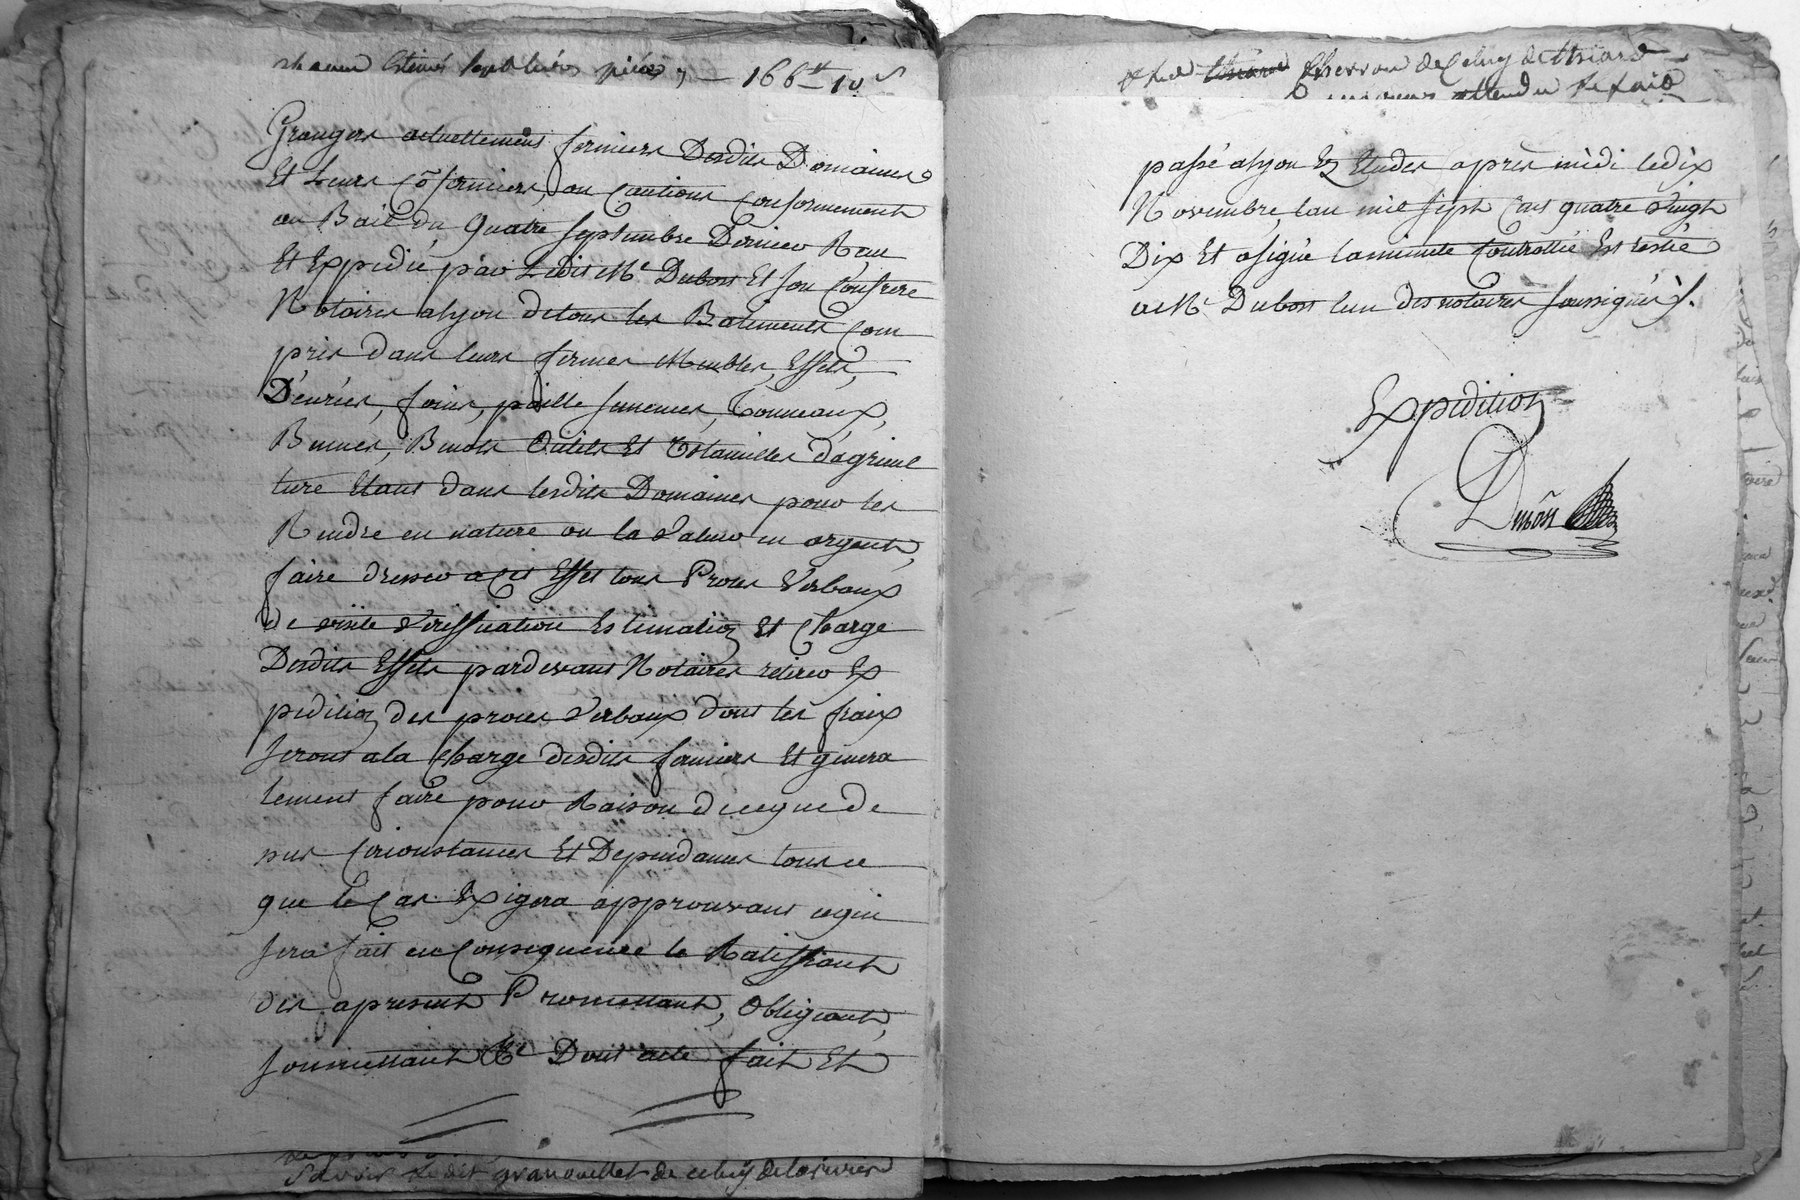 chacun Estimés sept livres pièce, — 166 ₶ 10 s
Grangers actuellement fermiers Desdits Domaines
Et Leurs Cõfermiers, ou Cautions Conformement
au Bail du quatre septembre Dernier Reçu
Et Expedié par Ledit Me Dubost Et son Confrere
Notaires alyon detous les Batiments Com
pris dans leurs fermes Meubles, Effets,
Denrées, foins, paille semences, Tonneaux,
Bennes, Benots Outils Et Ustancilles d'agricul
ture Etant dans lesdits Domaines pour les
Rendre en nature ou la valeur en argent,
faire dresser acet Effet tous Proces Verbaux
de visite Veriffication Estimation Et Charge
Desdits Effets pardevant Notaires retirer Ex
pedition des proces Verbaux dont les fraix
seront ala Charge desdits fermiers Et genera
lement faire pour Raison de ceque de
sus Circonstances Et Dependances tous ce
que le Cas Exigera approuvant cequi
sera fait en Consequence le Ratiffiant
des apresent Promettant, Obligeant,
soumettant &c Dont acte fait Et
Savoir ledit granouillet de celuy delariviere
de celuy de thiard
attendu le fait
passé alyon Ez Etudes après midi ledix
Novembre, lan mil sept Cens quatre Vingt
Dix Et asigné laminute Controllée Est restée
a Me Dubost lun des notaires soussignés.
Expedition
Dubost